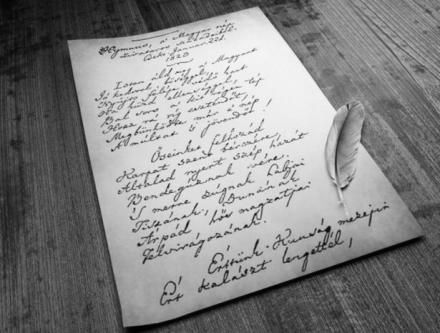 Hymnus, a' Magyar nép
zivataros századaiból.
Cseke, Januar. 22d.
1823
Isten áldd meg a' Magyart
Jó kedvvel, bőséggel,
Nyújts feléje védő kart
Ha küzd ellenséggel;
Bal sors a' kit régen tép
Hozz rá víg esztendőt,
Megbűnhődte már e' nép
A' múltat 's jövendőt!
Őseinket felhozád
Kárpát szent bérczére,
Általad nyert szép hazát
Bendegúznak vére.
'S merre zúgnak habjai
Tiszának, Dunának
Árpád hős magzatjai
Felvirágozának.
Értünk Kunság mezején
Ért kalászt lengettél,